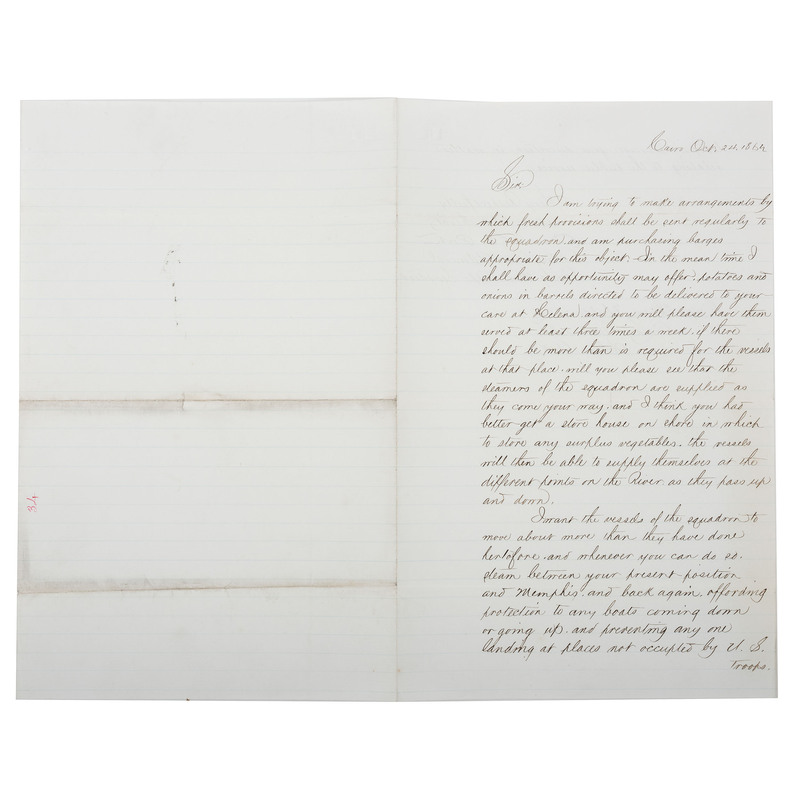 Cairo Oct. 24, 1862
Sir
I am trying to make arrangements by
which fresh provisions shall be sent regularly to
the squadron, and am purchasing barges
appropriate for this object; In the mean time I
shall have as opportunity may offer, potatoes and
onions in barrels directed to be delivered to your
care at Helena and you will please have them
served at least three times a week, if there
should be more than is required for the vessels
at that place, will you please see that the
steamers of the squadron are supplied as
they come your way, and I think you had
better get a store house on shore in which
to store any surplus vegetables, the vessels
will then be able to supply themselves at the
different points on the River as they pass up
and down.
I want the vessels of the squadron to
move about more than they have done
hertofore, and whenever you can do so,
steam between your present position
and Memphis, and back again, affording
protection to any boats coming down
or going up, and preventing any one
landing at places not occupied by U. S.
Troops.
34